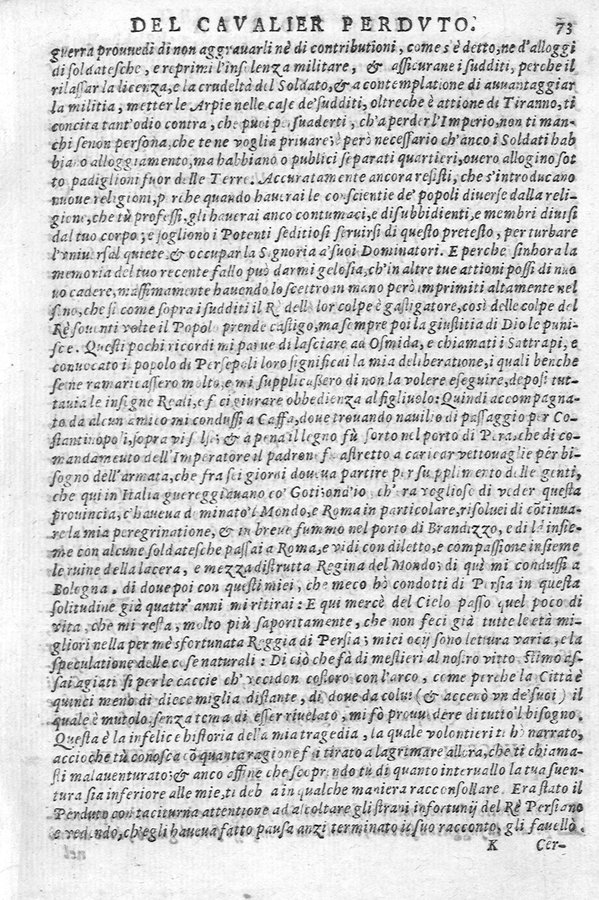 DEL CAVALIER PERDVTO. 73
guerra prouuedi di non aggrauarli nè di contributioni, come s'è detto, ne d'alloggi
di soldatesche, e reprimi l'insolenza militare, & assicurane i sudditi, perche il
rilassar la licenza, e la crudeltà del Soldato, & a contemplatione di auuantaggiar
la militia, metter le Arpie nelle case de' sudditi, oltreche è attione di Tiranno, ti
concita tant'odio contra, che puoi persuaderti, ch'a perder l'Imperio, non ti man-
chi senon persona, che te ne voglia priuare; è però necessario ch'anco i Soldati hab
biano alloggiamento, ma habbiano o publici separati quartieri, ouero allogino sot
to padiglioni fuor delle Terre. Accuratamente ancora resisti, che s'introducano
nuoue religioni, perche quando hauerai le conscientie de' popoli diuerse dalla reli-
gione, che tù professi, gli hauerai anco contumaci, e disubbidienti, e membri diuisi
dal tuo corpo; e sogliono i Potenti seditiosi seruirsi di questo pretesto, per turbare
l'vniuersal quiete & occupar la Signoria a suoi Dominatori. E perche sinhora la
memoria del tuo recente fallo può darmi gelosia, ch'in altre tue attioni possi di nuo
uo cadere, massimamente hauendo lo scettro in mano però imprimiti altamente nel
seno, che si come sopra i sudditi il Rè delle lor colpe è gastigatore, così delle colpe del
Rè souenti volte il Popolo prende castigo, ma sempre poi la giustitia di Dio le puni-
sce. Questi pochi ricordi mi parue di lasciare ad Osmida, e chiamati i Sattrapi, e
conuocato il popolo di Persepoli loro significai la mia deliberatione, i quali benche
se ne ramaricassero molto, e mi supplicassero di non la volere eseguire, deposi tut-
tauia le insigne Reali, e feci giurare obbedienza al figliuolo: Quindi accompagna-
to da alcun amico mi condussi a Caffa, doue trouando nauilio di passaggio per Co-
stantinopoli, sopra vi salsi; & a pena il legno fù sorto nel porto di Pera, che di co-
mandamento dell'Imperatore il padron fu astretto a caricar vettouaglie pèr bi-
sogno dell'armata, che fra sei giorni doueua partire per supplimento delle genti,
che qui in Italia guereggiauano co' Goti; ond'io ch'era vogliose di veder questa
prouincia, c'haueua dominato'l Mondo, e Roma in particolare, risoluei di cōtinua-
re la mia peregrinatione, & in breue fummo nel porto di Brandizzo, e di là insie-
me con alcune soldatesche passai a Roma, e vidi con diletto, e compassione insieme
le ruine della lacera, e mezza distrutta Regina del Mondo; di quà mi condussi a
Bologna, di doue poi con questi miei, che meco hò condotti di Persia in questa
solitudine già quattr'anni mi ritirai: E qui mercè del Cielo passo quel poco di
vita, che mi resta, molto più saporitamente, che non feci già tutte le età mi-
gliori nella per mè sfortunata Reggia di Persia; miei ocij sono lettura varia, e la
speculatione delle cose naturali: Di ciò che fà di mestieri al nostro vitto, siamo as-
sai agiati sì per le caccie ch'vccidon costoro con l'arco, come perche la Città è
quinci meno di diece miglia distante, di doue da colui (& accenò vn de' suoi) il
quale è mutolo senza tema di esser riuelato, mi fò prouedere di tutto'l bisogno.
Questa è la infelice historia della mia tragedia, la quale volontieri ti hò narrato,
accioche tù conosca cō quanta ragione fui tirato a lagrimare allora, che ti chiama-
sti malauenturato; & anco affine che scoprendo tu di quanto interuallo la tua suen-
tura sia inferiore alle mie, ti debba in qualche maniera racconsollare. Era stato il
Perduto con taciturna attentione ad ascoltare gli strani infortunij del Rè Persiano
e vedendo, ch'egli haueua fatto pausa anzi terminato il suo racconto, gli fauellò.
K Cer-